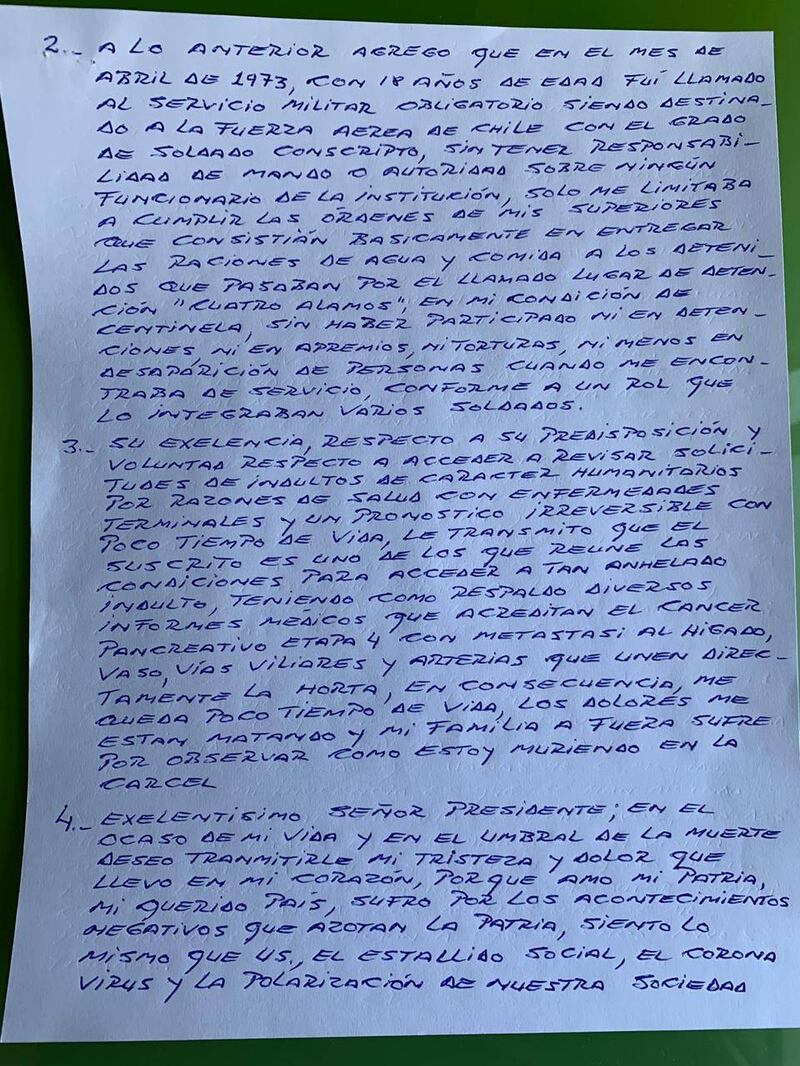 2.- A LO ANTERIOR AGREGO QUE EN EL MES DE
ABRIL DE 1973, CON 18 AÑOS DE EDAD FUÍ LLAMADO
AL SERVICIO MILITAR OBLIGATORIO SIENDO DESTINA-
DO A LA FUERZA AEREA DE CHILE CON EL GRADO
DE SOLDADO CONSCRIPTO, SIN TENER RESPONSABI-
LIDAD DE MANDO O AUTORIDAD SOBRE NINGÚN
FUNCIONARIO DE LA INSTITUCIÓN, SOLO ME LIMITABA
A CUMPLIR LAS ÓRDENES DE MIS SUPERIORES
QUE CONSISTIÁN BASICAMENTE EN ENTREGAR
LAS RACIONES DE AGUA Y COMIDA A LOS DETENI-
DOS QUE PASABAN POR EL LLAMADO LUGAR DE DETEN-
CIÓN "CUATRO ALAMOS", EN MI CONDICIÓN DE
CENTINELA, SIN HABER PARTICIPADO NI EN DETEN-
CIONES, NI EN APREMIOS, NI TORTURAS, NI MENOS EN
DESAPARICIÓN DE PERSONAS CUANDO ME ENCON-
TRABA DE SERVICIO, CONFORME A UN ROL QUE
LO INTEGRABAN VARIOS SOLDADOS.
3.- SU EXELENCIA, RESPECTO A SU PREDISPOSICIÓN Y
VOLUNTAD RESPECTO A ACCEDER A REVISAR SOLICI-
TUDES DE INDULTOS DE CARACTER HUMANITARIOS
POR RAZONES DE SALUD CON ENFERMEDADES
TERMINALES Y UN PRONOSTICO IRREVERSIBLE CON
POCO TIEMPO DE VIDA, LE TRANSMITO QUE EL
SUSCRITO ES UNO DE LOS QUE REUNE LAS
CONDICIONES PARA ACCEDER A TAN ANHELADO
INDULTO, TENIENDO COMO RESPALDO DIVERSOS
INFORMES MEDICOS QUE ACREDITAN EL CANCER
PANCREATIVO ETAPA 4 CON METASTASI AL HIGADO,
VASO, VÍAS VILIARES Y ARTERIAS QUE UNEN DIREC-
TAMENTE LA HORTA, EN CONSECUENCIA, ME
QUEDA POCO TIEMPO DE VIDA, LOS DOLORES ME
ESTAN MATANDO Y MI FAMILIA A FUERA SUFRE
POR OBSERVAR COMO ESTOY MURIENDO EN LA
CARCEL
4.- EXELENTISIMO SEÑOR PRESIDENTE; EN EL
OCASO DE MI VIDA Y EN EL UMBRAL DE LA MUERTE
DESEO TRANMITIRLE MI TRISTEZA Y DOLOR QUE
LLEVO EN MI CORAZÓN, PORQUE AMO MI PATRIA,
MI QUERIDO PAÍS, SUFRO POR LOS ACONTECIMIENTOS
NEGATIVOS QUE AZOTAN LA PATRIA, SIENTO LO
MISMO QUE US., EL ESTALLIDO SOCIAL, EL CORONA
VIRUS Y LA POLARIZACIÓN DE NUESTRA SOCIEDAD